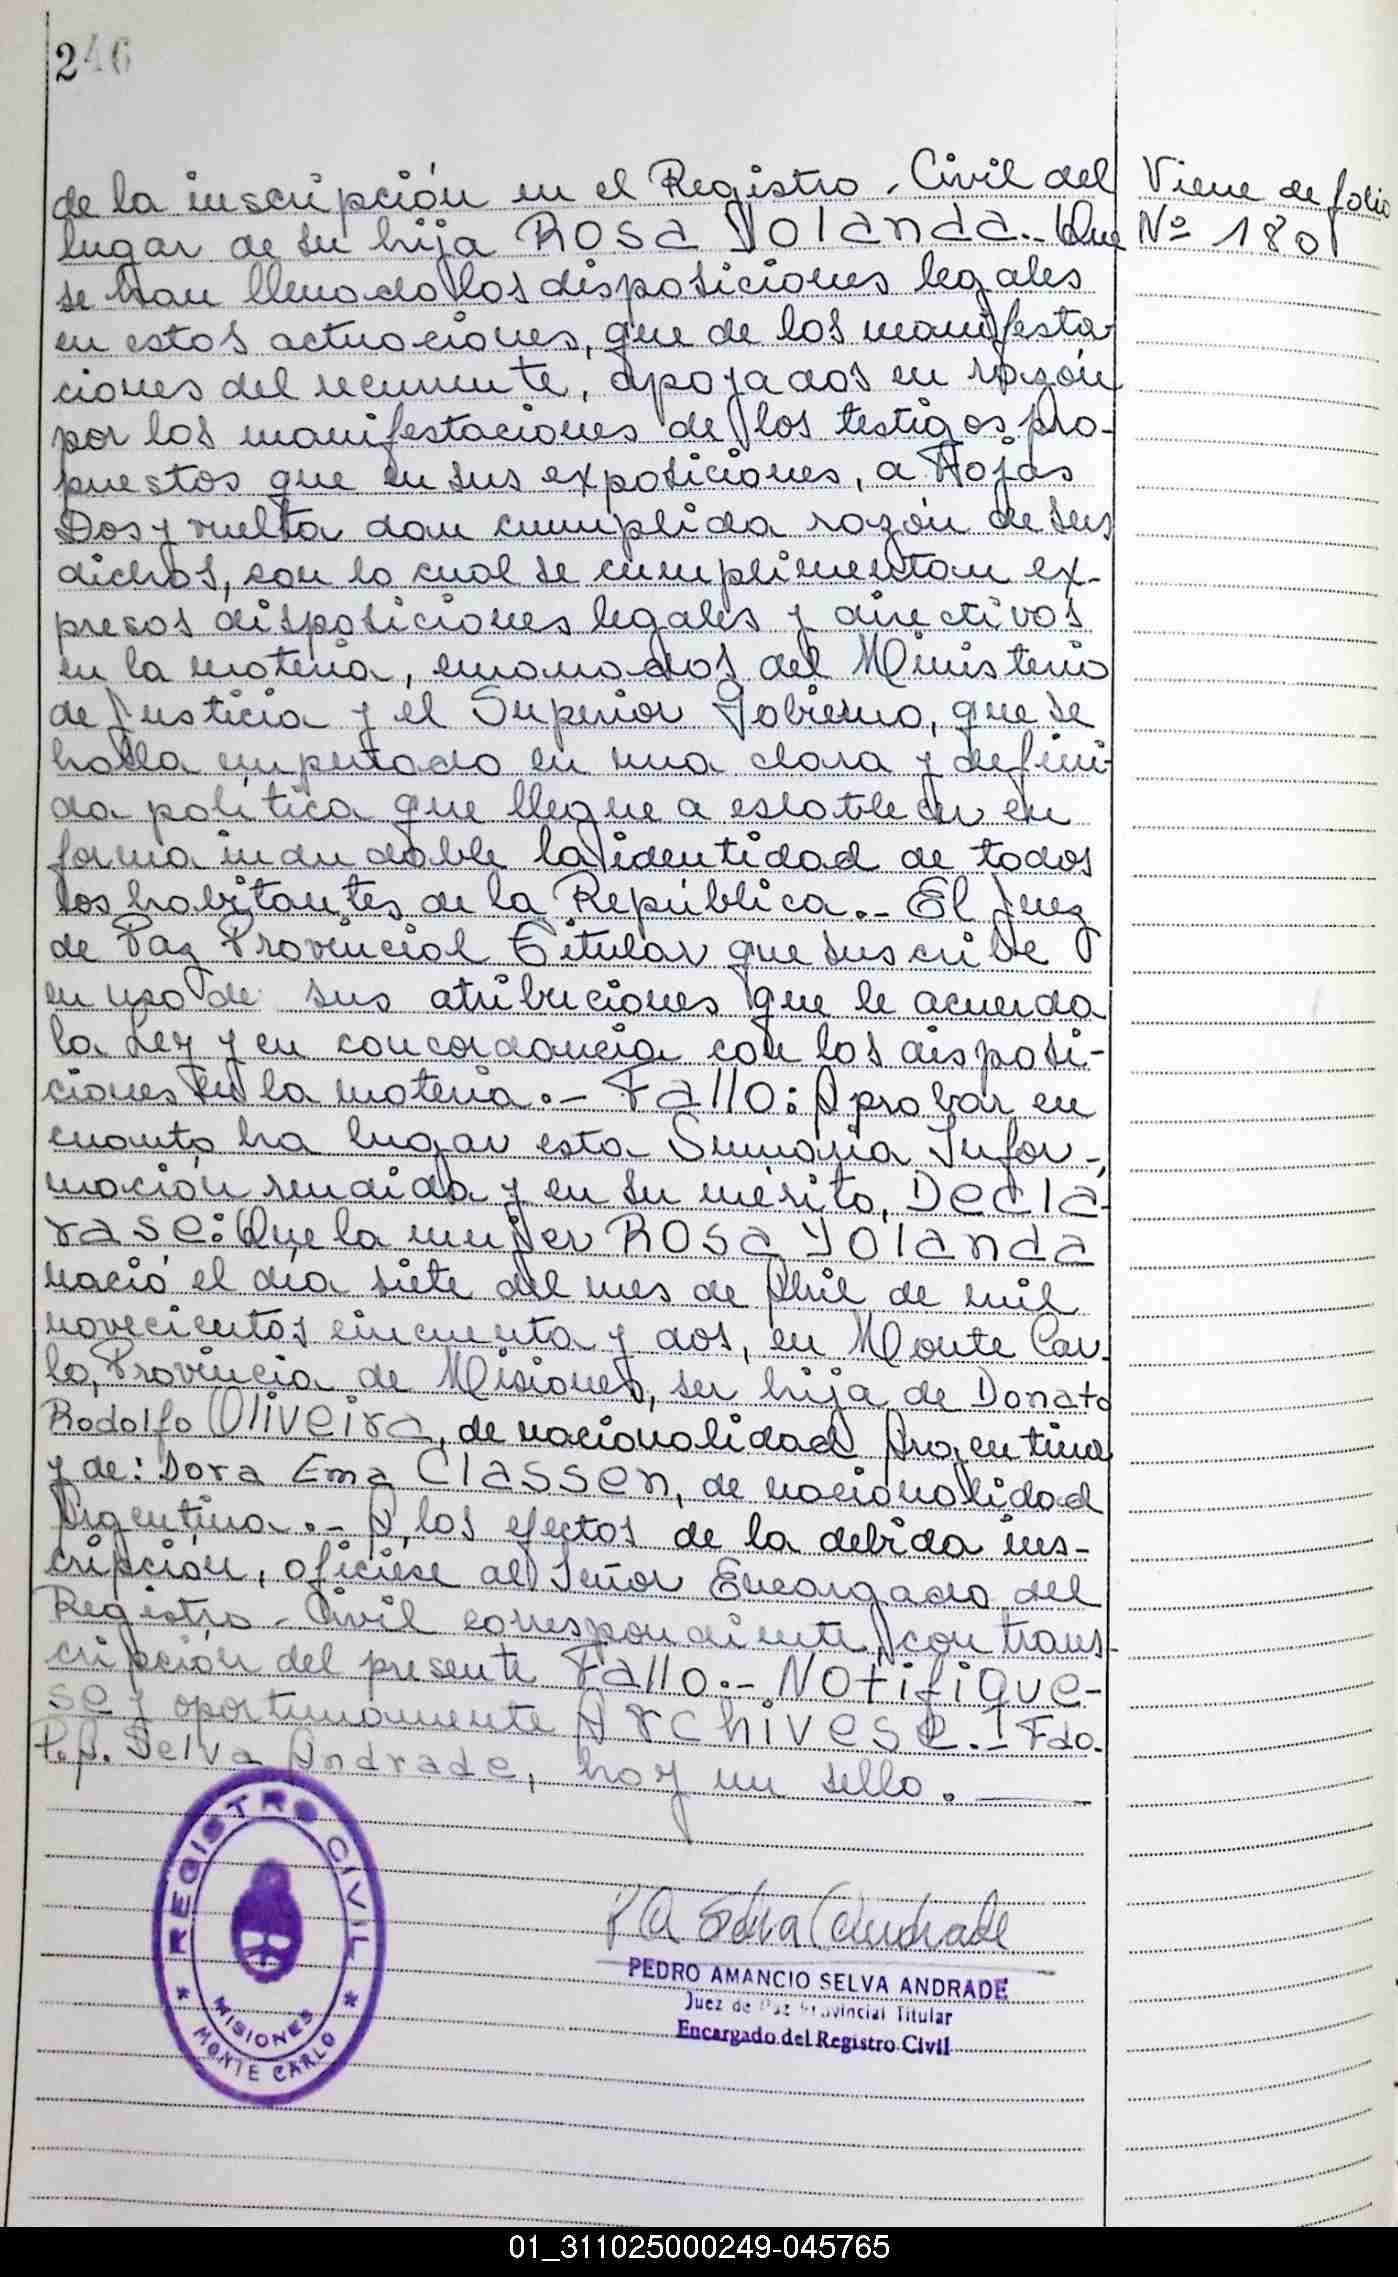 246
de la inscripción en el Registro-Civil del
lugar de su hija ROSA YOLANDA.- Que
se han llenado las disposiciones legales
en estas actuaciones, que de las manifesta-
ciones del recurrente, apoyadas en razón
por las manifestaciones de los testigos pro-
puestos que en sus exposiciones, a Hojas
Dos y vuelta dan cumplida razón de sus
dichos, con lo cual se cumplimentan ex-
presas disposiciones legales y directivas
en la materia, emanadas del Ministerio
de Justicia y el Superior Gobierno, que se
halla empeñado en una clara y defini-
da política que llegue a establecer en
forma indudable la identidad de todos
los habitantes de la República.- El Juez
de Paz Provincial Titular que suscribe
en uso de sus atribuciones que le acuerda
la Ley y en concordancia con las disposi-
ciones en la materia.- Fallo: Aprobar en
cuanto ha lugar esta Sumaria Infor-
mación rendida y en su mérito, Declá-
rase: Que la mujer ROSA YOLANDA
nació el día siete del mes de Abril de mil
novecientos cincuenta y dos, en Monte Car-
lo, Provincia de Misiones, ser hija de Donato
Rodolfo Oliveira, de nacionalidad Argentina
y de: Dora Ema Classen, de nacionalidad
Argentina.- A los efectos de la debida ins-
cripción, ofíciese al Señor Encargado del
Registro-Civil correspondiente, con trans-
cripción del presente Fallo.- Notifíque-
se y oportunamente Archívese.- Fdo.
P.A. Selva Andrade, hay un sello.
Viene de folio
Nº 180
REGISTRO CIVIL
MISIONES
MONTE CARLO
P A Selva Andrade
PEDRO AMANCIO SELVA ANDRADE
Juez de Paz Provincial Titular
Encargado del Registro Civil
01_311025000249-045765